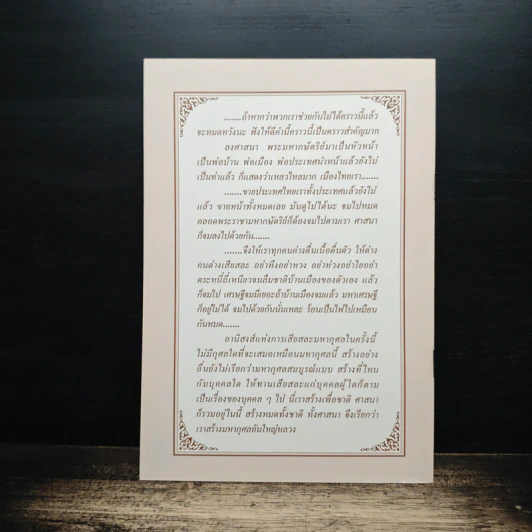 .......ถ้าหากว่าพวกเราช่วยกันไม่ได้คราวนี้แล้ว
จะหมดหวังนะ ฟังให้ดีคำนี้คราวนี้เป็นคราวสำคัญมาก
ลงศาสนา พระมหากษัตริย์มาเป็นหัวหน้า
เป็นพ่อบ้าน พ่อเมือง พ่อประเทศนำหน้าแล้วยังไม่
เป็นท่าแล้ว ก็แสดงว่าเหลวไหลมาก เมืองไทยเรา.......
.......ขายประเทศไทยเราทั้งประเทศแล้วยังไม่
แล้ว ขายหน้าทั้งหมดเลย มันดูไม่ได้นะ จมไปหมด
ตลอดพระราชามหากษัตริย์ก็ต้องจมไปตามเรา ศาสนา
ก็จมลงไปด้วยกัน.......
.......จึงให้เราทุกคนต่างตื่นเนื้อตื่นตัว ให้ต่าง
คนต่างเสียสละ อย่าหึงอย่าหวง อย่าห่วงอย่าใยอย่า
ตระหนี่ถี่เหนียวจนลืมชาติบ้านเมืองของตัวเอง แล้ว
ก็จมไป เศรษฐีจมมีเยอะถ้าบ้านเมืองจมแล้ว มหาเศรษฐี
ก็อยู่ไม่ได้ จมไปด้วยกันนั่นแหละ ร้อนเป็นไฟไปเหมือน
กันหมด.......
อานิสงส์แห่งการเสียสละมหากุศลในครั้งนี้
ไม่มีกุศลใดที่จะเสมอเหมือนมหากุศลนี้ สร้างอย่าง
อื่นยังไม่เรียกว่ามหากุศลสมบูรณ์แบบ สร้างที่ไหน
กับบุคคลใด ให้ทานเสียสละแก่บุคคลผู้ใดก็ตาม
เป็นเรื่องของบุคคล ๆ ไป นี่เราสร้างเพื่อชาติ ศาสนา
ก็รวมอยู่ในนี้ สร้างหมดทั้งชาติ ทั้งศาสนา จึงเรียกว่า
เราสร้างมหากุศลอันใหญ่หลวง